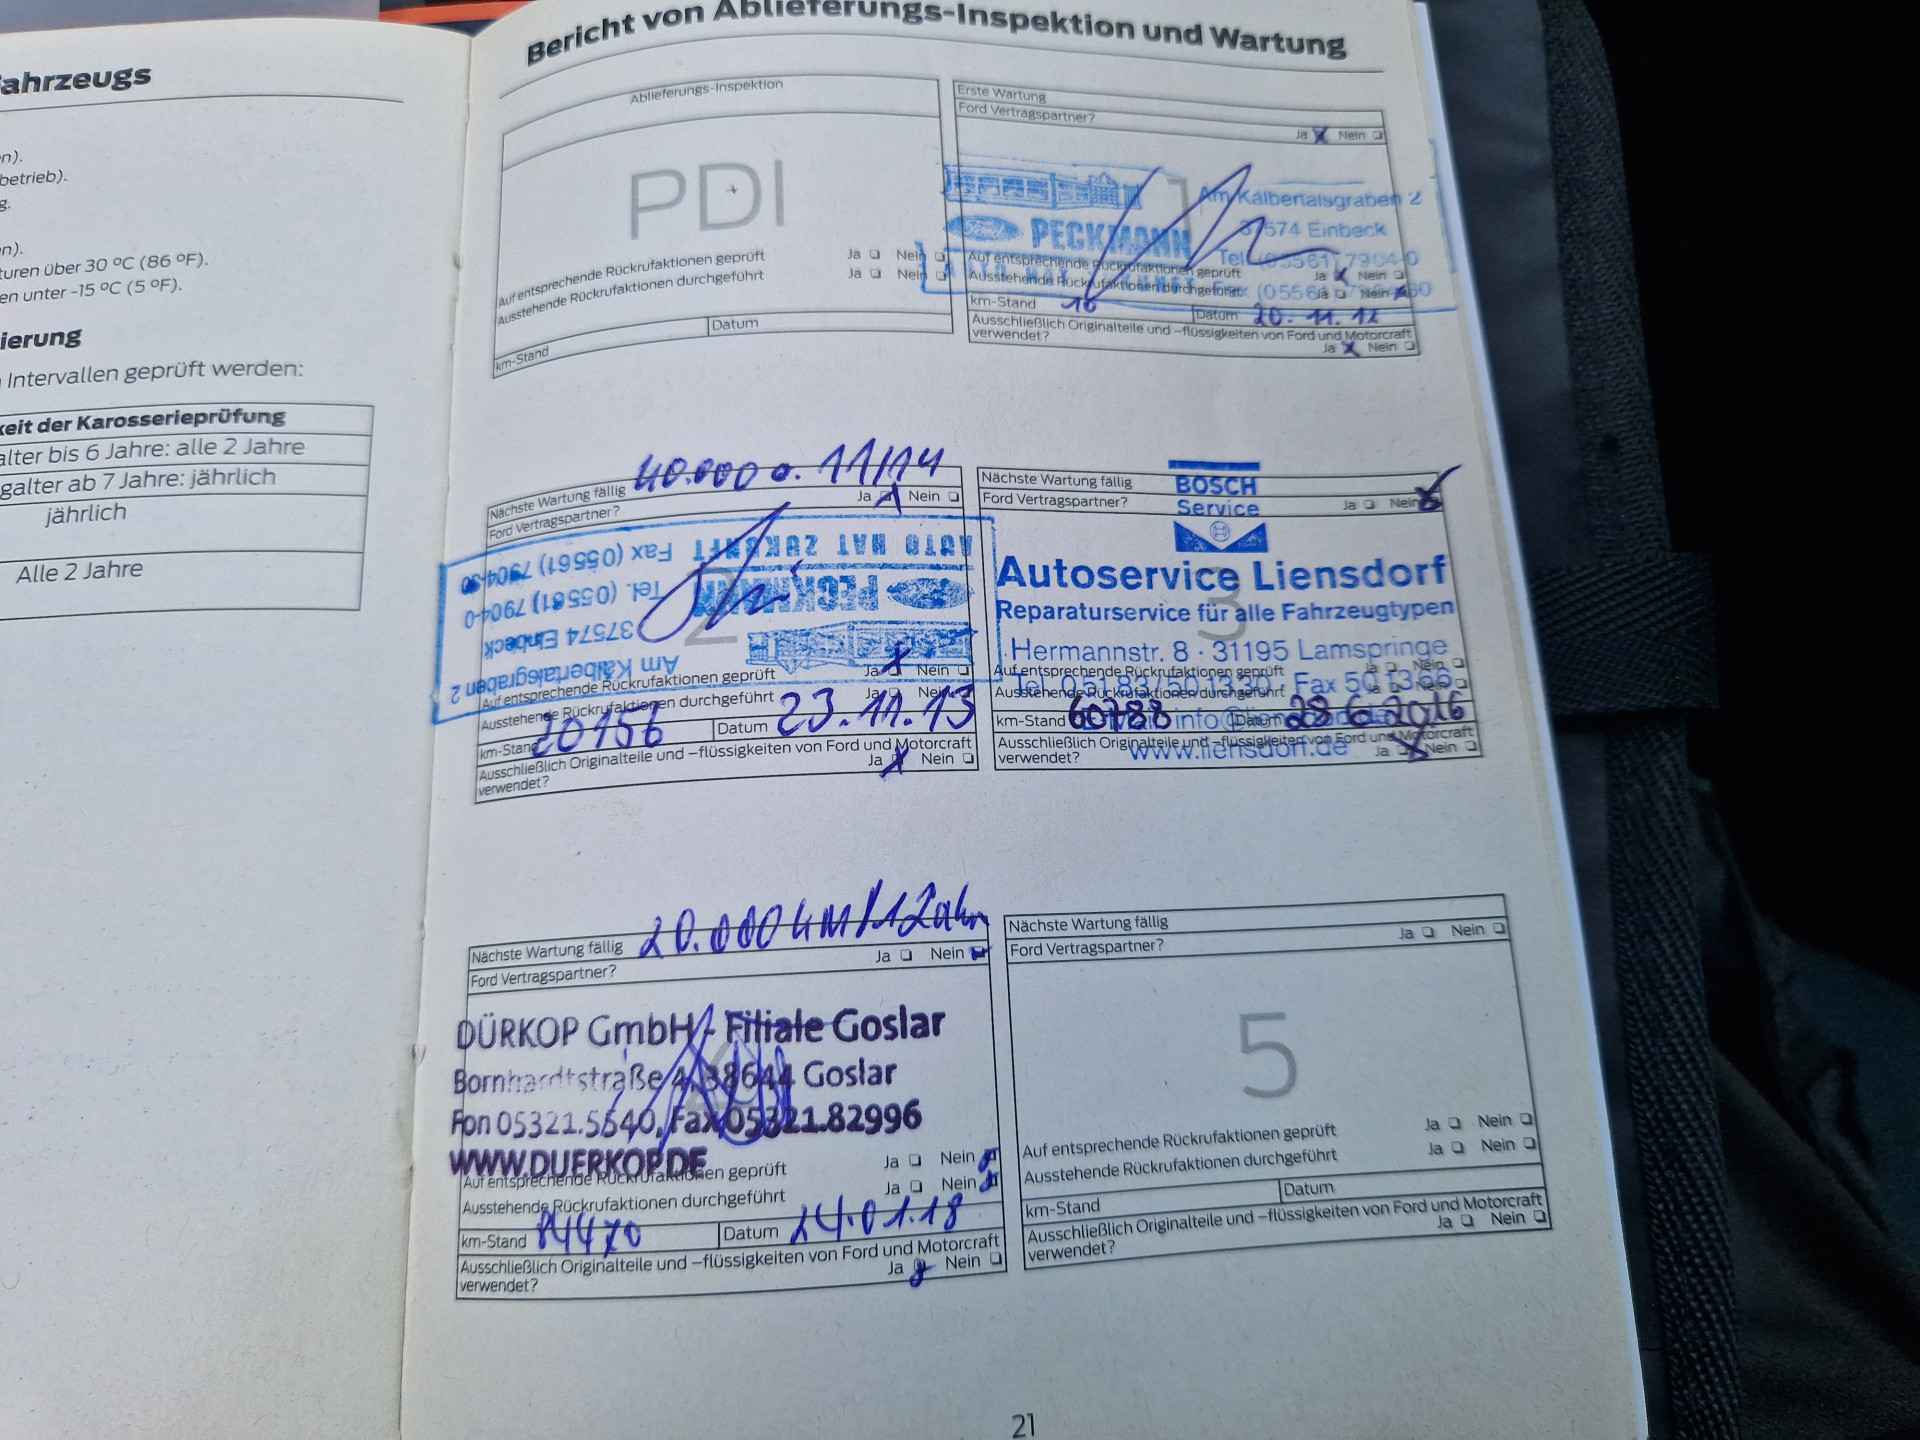 ahrzeugs
n).
betrieb).
g.
n).
turen über 30 °C (86 °F).
en unter -15 °C (5 °F).
ierung
Intervallen geprüft werden:
keit der Karosserieprüfung
alter bis 6 Jahre: alle 2 Jahre
galter ab 7 Jahre: jährlich
jährlich
Alle 2 Jahre
Bericht von Ablieferungs-Inspektion und Wartung
Ablieferungs-Inspektion
PDI
Auf entsprechende Rückrufaktionen geprüft Ja Nein
Ausstehende Rückrufaktionen durchgeführt Ja Nein
km-Stand Datum
Erste Wartung
Ford Vertragspartner?
Ja Nein
1
Am Kälbertalsgraben 2
PECKMANN 37574 Einbeck
Tel. (05561) 7904-0
Auf entsprechende Rückrufaktionen geprüft Ja Nein
Ausstehende Rückrufaktionen durchgeführt Ja Nein
km-Stand 16 Datum 20.11.12
Ausschließlich Originalteile und –flüssigkeiten von Ford und Motorcraft
verwendet? Ja Nein
Nächste Wartung fällig 40.000 o. 11/14
Ford Vertragspartner? Ja Nein
AUTO HAT ZUKUNFT Fax (05561) 7904-30
PECKMANN Tel. (05561) 7904-0
37574 Einbeck
Am Kälbertalsgraben 2
2
Auf entsprechende Rückrufaktionen geprüft Ja Nein
Ausstehende Rückrufaktionen durchgeführt Ja Nein
km-Stand 20156 Datum 23.11.13
Ausschließlich Originalteile und –flüssigkeiten von Ford und Motorcraft
verwendet? Ja Nein
Nächste Wartung fällig
Ford Vertragspartner? Ja Nein
BOSCH
Service
Autoservice Liensdorf
Reparaturservice für alle Fahrzeugtypen
3
Hermannstr. 8 · 31195 Lamspringe
Auf entsprechende Rückrufaktionen geprüft Ja Nein
Fax 501366
Ausstehende Rückrufaktionen durchgeführt
km-Stand 60788 Datum 28.6.2016
Ausschließlich Originalteile und –flüssigkeiten von Ford und Motorcraft
verwendet? Ja Nein
www.liensdorf.de
Nächste Wartung fällig 20.000 km/1 Jahr
Ford Vertragspartner? Ja Nein
DÜRKOP GmbH - Filiale Goslar
Bornhardtstraße 4, 38644 Goslar
Fon 05321.5540, Fax 05321.82996
WWW.DUERKOP.DE
Auf entsprechende Rückrufaktionen geprüft Ja Nein
Ausstehende Rückrufaktionen durchgeführt Ja Nein
km-Stand Datum 24.01.18
Ausschließlich Originalteile und –flüssigkeiten von Ford und Motorcraft
verwendet? Ja Nein
Nächste Wartung fällig
Ford Vertragspartner? Ja Nein
5
Auf entsprechende Rückrufaktionen geprüft Ja Nein
Ausstehende Rückrufaktionen durchgeführt Ja Nein
km-Stand Datum
Ausschließlich Originalteile und –flüssigkeiten von Ford und Motorcraft
verwendet? Ja Nein
21